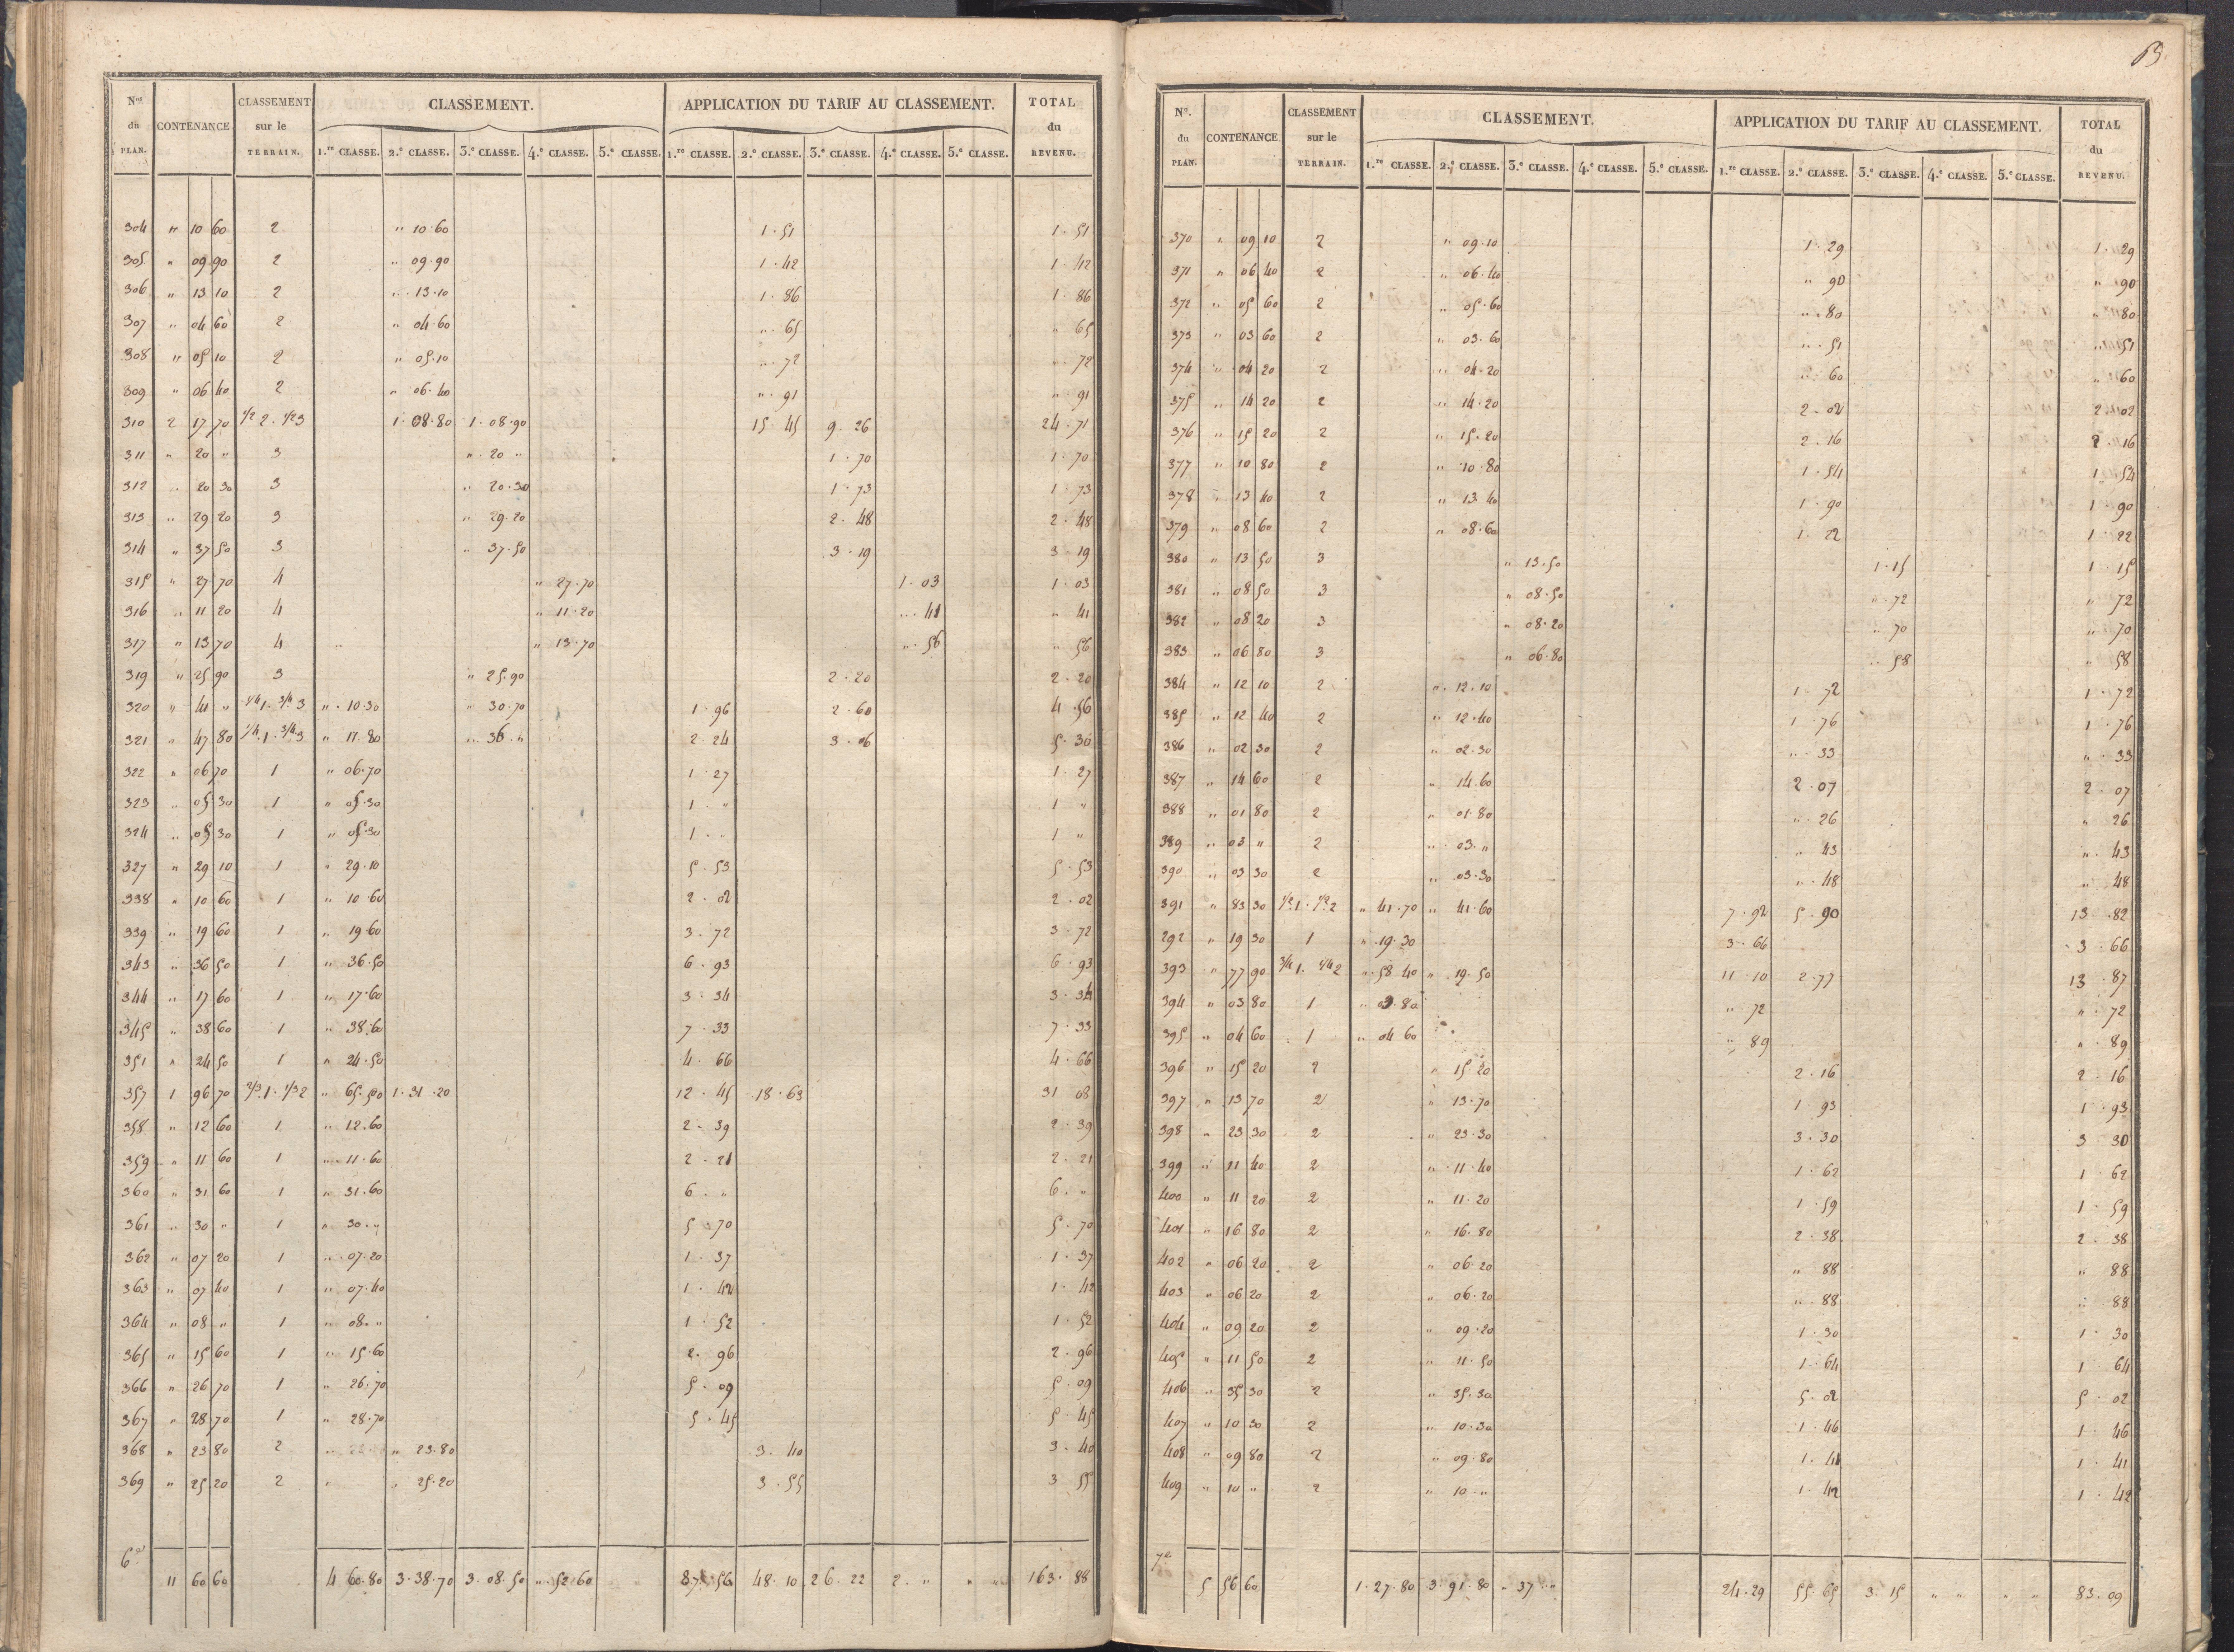 Nos du PLAN. CONTENANCE CLASSEMENT sur le TERRAIN. CLASSEMENT. APPLICATION DU TARIF AU CLASSEMENT. TOTAL du REVENU.
1.re CLASSE. 2.e CLASSE. 3.e CLASSE. 4.e CLASSE. 5.e CLASSE. 1.re CLASSE. 2.e CLASSE. 3.e CLASSE. 4.e CLASSE. 5.e CLASSE.
304 " 10 60 2 " 10.60 1.51 1.51
305 " 09 90 2 " 09.90 1.42 1.42
306 " 13 10 2 " 13.10 1.86 1.86
307 " 04 60 2 " 04.60 " 65 " 65
308 " 05 10 2 " 05.10 " 72 " 72
309 " 06 40 2 " 06.40 " 91 " 91
310 2 17 70 1/2 2. 1/2 3 1.08.80 1.08.90 15.45 9.26 24.71
311 " 20 " 3 " 20 " 1.70 1.70
312 " 20 30 3 " 20.30 1.73 1.73
313 " 29 20 3 " 29.20 2.48 2.48
314 " 37 50 3 " 37.50 3.19 3.19
315 " 27 70 4 " 27.70 1.03 1.03
316 " 11 20 4 " 11.20 " 41 " 41
317 " 13 70 4 " " 13.70 " 56 " 56
319 " 25 90 3 " 25.90 2.20 2.20
320 " 41 " 1/4 1. 3/4 3 " 10.30 " 30.70 1.96 2.60 4.56
321 " 47 80 1/4 1. 3/4 3 " 11.80 " 36 " 2.24 3.06 5.30
322 " 06 70 1 " 06.70 1.27 1.27
323 " 05 30 1 " 05.30 1. " 1 "
324 " 05 30 1 " 05.30 1. " 1 "
327 " 29 10 1 " 29.10 5.53 5.53
338 " 10 60 1 " 10.60 2.02 2.02
339 " 19 60 1 " 19.60 3.72 3.72
343 " 36 50 1 " 36.50 6.93 6.93
344 " 17 60 1 " 17.60 3.34 3.34
345 " 38 60 1 " 38.60 7.33 7.33
351 " 24 50 1 " 24.50 4.66 4.66
357 1 96 70 2/3 1. 1/3 2 " 65.50 1.31.20 12.45 18.63 31 08
358 " 12 60 1 " 12.60 2.39 2.39
359 " 11 60 1 " 11.60 2.21 2.21
360 " 31 60 1 " 31.60 6. " 6. "
361 " 30 " 1 " 30. " 5.70 5.70
362 " 07 20 1 " 07.20 1.37 1.37
363 " 07 40 1 " 07.40 1.42 1.42
364 " 08 " 1 " 08. " 1.52 1.52
365 " 15 60 1 " 15.60 2.96 2.96
366 " 26 70 1 " 26.70 5.09 5.09
367 " 28 70 1 " 28.70 5.45 5.45
368 " 23 80 2 " 23.80 3.40 3.40
369 " 25 20 2 " " 25.20 3.55 3 55
11 60 60 4 60.80 3.38.70 3.08.50 " 52.60 87.56 48.10 26.22 2. " " " 163.88
N°. du PLAN. CONTENANCE. CLASSEMENT sur le TERRAIN. CLASSEMENT. APPLICATION DU TARIF AU CLASSEMENT. TOTAL du REVENU.
1.re CLASSE. 2.e CLASSE. 3.e CLASSE. 4.e CLASSE. 5.e CLASSE. 1.re CLASSE. 2.e CLASSE. 3.e CLASSE. 4.e CLASSE. 5.e CLASSE.
370 " 09 10 2 " 09.10 1.29 1.29
371 " 06 40 2 " 06.40 " 90 " 90
372 " 05 60 2 " 05.60 " 80 " 80
373 " 03 60 2 " 03.60 " 51 " 51
374 " 04 20 2 " 04.20 " 60 " 60
375 " 14 20 2 " 14.20 2.02 2.02
376 " 15 20 2 " 15.20 2.16 2.16
377 " 10 80 2 " 10.80 1.54 1.54
378 " 13 40 2 " 13.40 1.90 1.90
379 " 08 60 2 " 08.60 1.22 1.22
380 " 13 50 3 " 13.50 1.15 1.15
381 " 08 50 3 " 08.50 " 72 " 72
382 " 08 20 3 " 08.20 " 70 " 70
383 " 06 80 3 " 06.80 " 58 " 58
384 " 12 10 2 " 12.10 1.72 1.72
385 " 12 40 2 " 12.40 1.76 1.76
386 " 02 30 2 " 02.30 " 33 " 33
387 " 14 60 2 " 14.60 2.07 2.07
388 " 01 80 2 " 01.80 " 26 " 26
389 " 03 " 2 " 03. " " 43 " 43
390 " 03 30 2 " 03.30 " 48 " 48
391 " 83 30 1/2 1. 1/2 2 " 41.70 " 41.60 7.92 5.90 13.82
292 " 19 30 1 " 19.30 3.66 3.66
393 " 77 90 3/4 1. 1/4 2 " 58 40 " 19.50 11.10 2.77 13.87
394 " 03 80 1 " 03.80 " 72 " 72
395 " 04 60 1 " 04 60 " 89 " 89
396 " 15 20 2 " 15.20 2.16 2.16
397 " 13 70 2 " 13.70 1.93 1.93
398 " 23 30 2 " 23.30 3.30 3 30
399 " 11 40 2 " 11.40 1.62 1.62
400 " 11 20 2 " 11.20 1.59 1.59
401 " 16 80 2 " 16.80 2.38 2.38
402 " 06 20 2 " 06.20 " 88 " 88
403 " 06 20 2 " 06.20 " 88 " 88
404 " 09 20 2 " 09.20 1.30 1.30
405 " 11 50 2 " 11.50 1.64 1.64
406 " 35 30 2 " 35.30 5.02 5.02
407 " 10 30 2 " 10.30 1.46 1.46
408 " 09 80 2 " 09.80 1.41 1.41
409 " 10 " 2 " 10 " 1.42 1.42
5 56 60 1.27.80 3.91.80 " 37. " 24.29 55.65 3.15 " " " " 83.09